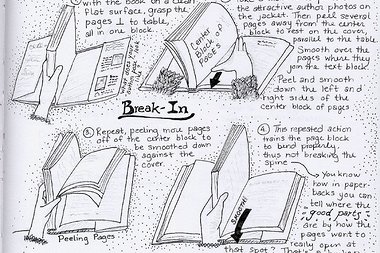 with the book on a clean
flat surface, grasp the
pages ⊥ to table,
all in one block.
the attractive author photos on
the jacket. Then peel several
pages away from the center
block to rest on the cover,
parallel to the table.
Smooth over the
pages where they
join the text block.
Center
Block of
Pages
Peel and smooth
down the left and
right sides of the
center block of pages
Break-In
③ Repeat, peeling more pages
off of the center block to
be smoothed down
against the
cover.
Peeling Pages
④ This repeated action
trains the page block
to bend properly,
thus not breaking the
spine
You know
how in paper-
backs you can
tell where the
"good parts"
are by how the
pages want to
really open at
that spot? That's
Smooth!